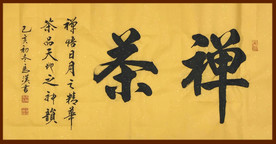 禅茶
禅悟日月之精華
茶品天地之神韻
己亥初冬
書